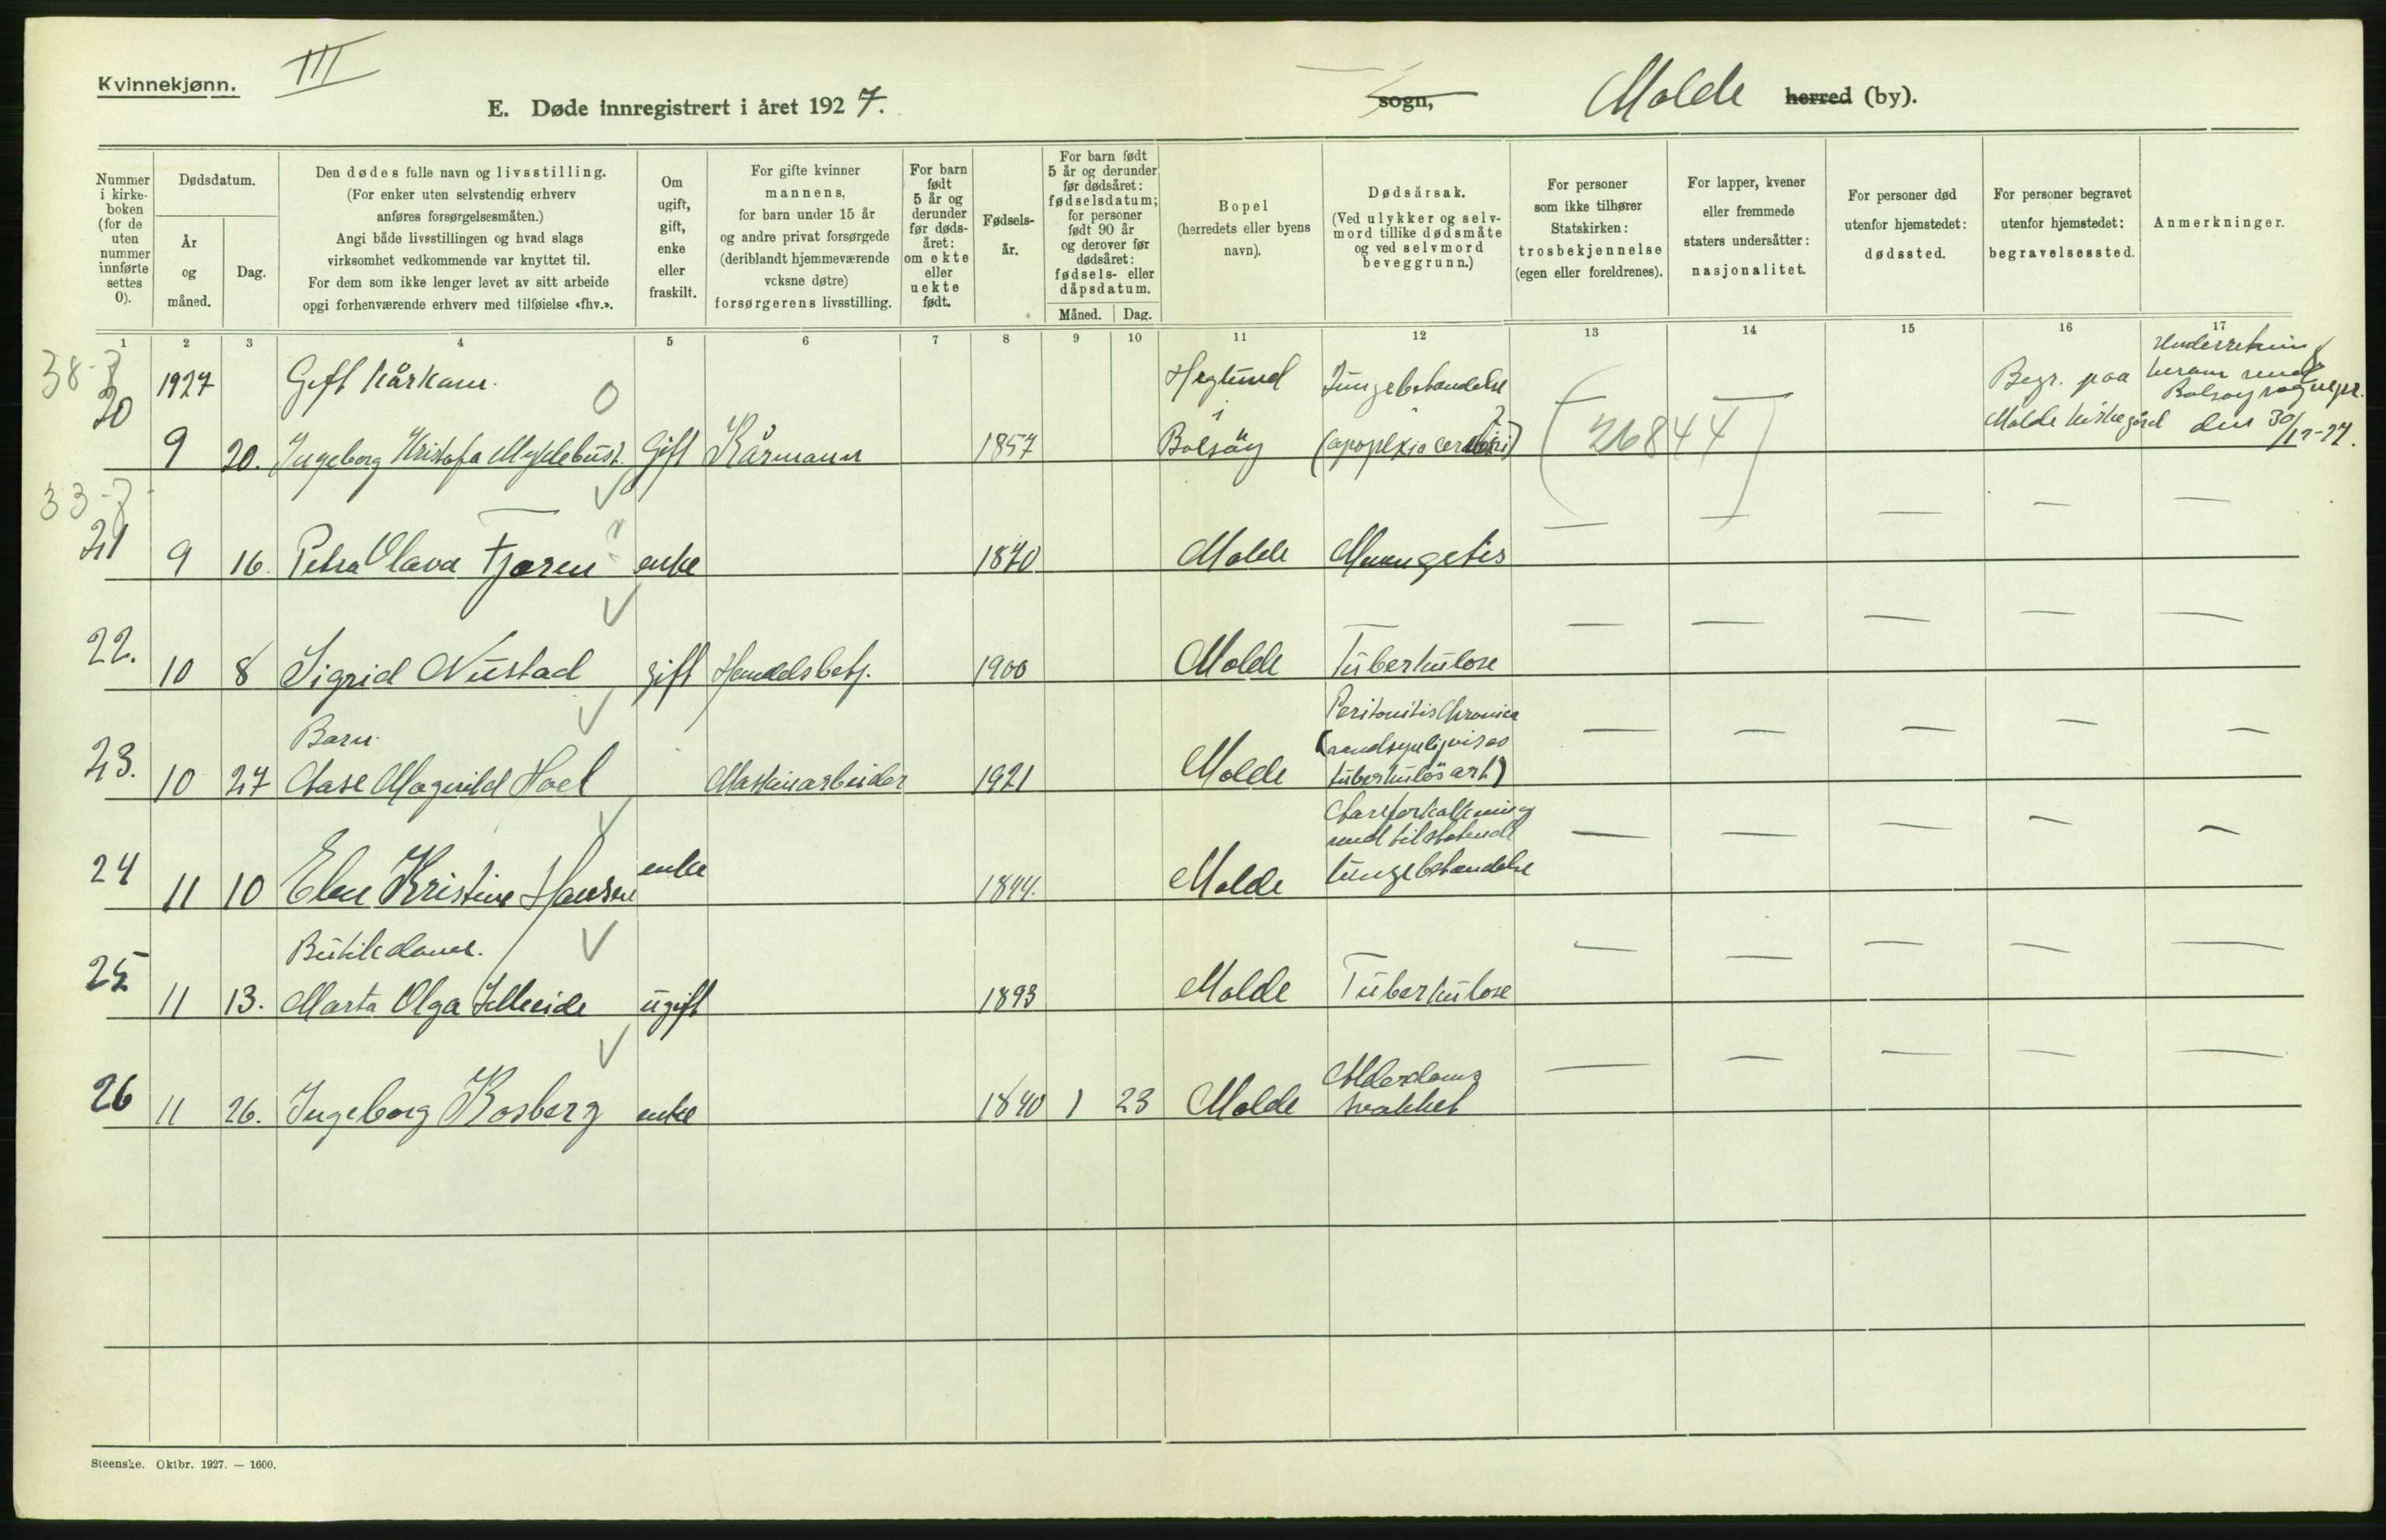 Kvinnekjønn.
III
E. Døde innregistrert i året 1927.
sogn,
Molde herred (by).
Nummer i kirke- boken (for de uten nummer innførte settes 0).
Dødsdatum.
År og måned.
Dag.
Den dødes fulle navn og livsstilling.
(For enker uten selvstendig erhverv
anføres forsørgelsesmåten.)
Angi både livsstillingen og hvad slags
virksomhet vedkommende var knyttet til.
For dem som ikke lenger levet av sitt arbeide
opgi forhenværende erhverv med tilføielse «fhv.».
Om ugift, gift, enke eller fraskilt.
For gifte kvinner
mannens,
for barn under 15 år
og andre privat forsørgede
(deriblandt hjemmeværende
vcksne døtre)
forsørgerens livsstilling.
For barn født 5 år og derunder før døds- året: om ekte eller uekte født.
Fødsels- år.
For barn født 5 år og derunder før dødsåret: fødselsdatum; for personer født 90 år og derover før dødsåret: fødsels- eller dåpsdatum.
Måned. Dag.
Bopel
(herredets eller byens
navn).
Dødsårsak.
(Ved ulykker og selv-
mord tillike dødsmåte
og ved selvmord
beveggrunn.)
For personer
som ikke tilhører
Statskirken:
trosbekjennelse
(egen eller foreldrenes).
For lapper, kvener
eller fremmede
staters undersåtter:
nasjonalitet.
For personer død
utenfor hjemstedet:
dødssted.
For personer begravet
utenfor hjemstedet:
begravelsessted.
Anmerkninger.
1 2 3 4 5 6 7 8 9 10 11 12 13 14 15 16 17
38-7
1927 Gift Kårkam. 0 Heglund Lungebetændelse Begr. paa
20 9 20. Ingeborg Kristofa Myklebust. Gift Kårmann 1857 i Bolsöy (apoplexia cerebri) ? (26844) Molde kirkegård den 30/12-27.
33-7
21 9 16. Petra Olava Tjøren ? enke 1840 Molde Meningetis
22. 10 8 Sigrid Nustad gift Handelsbetj. 1900 Molde Tuberkulose
Barn. Peritonitis Chronica
(sandsynligvis av
23. 10 27 Aase Magnild Hoel Maskinarbeider 1921 Molde tuberkuløs art)
Aareforkalkning
med tilstøtende
24 11 10 Elen Kristine Hansen enke 1844. Molde lungebetændelse
Butikkdame.
25 11 13. Marta Olga ugift 1893 Molde Tuberkulose
Alderdoms
26 11 26. Ingeborg Rosberg enke 1840 1 23 Molde svakhet
Steenske. Oktbr. 1927. — 1600.